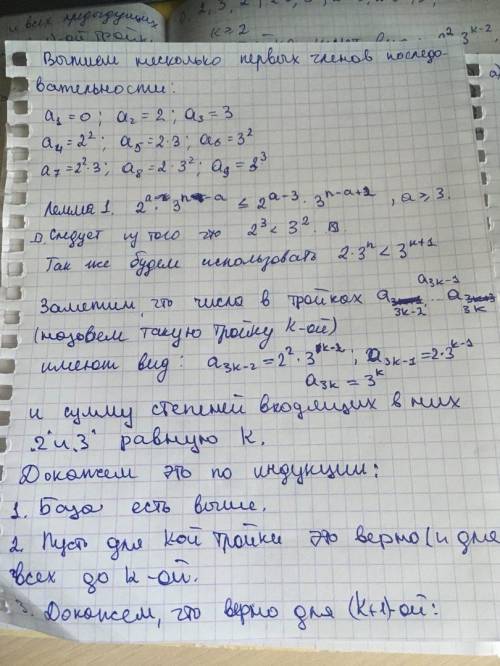 и всех предыдущих
k ≥ 2
Выпишем несколько первых членов последо-
вательности:
a₁ = 0 ; a₂ = 2 ; a₃ = 3
a₄ = 2² ; a₅ = 2·3 ; a₆ = 3²
a₇ = 2²·3 ; a₈ = 2·3² ; a₉ = 3³
Лемма 1. 2ᵃ · 3ⁿ⁻ᵃ ≤ 2ᵃ⁻³ · 3ⁿ⁻ᵃ⁺² , a ≥ 3.
Следует из того что 2³ < 3².
Так же будем использовать 2·3ⁿ < 3ⁿ⁺¹
Заметим, что числа в тройках a₃ₖ₋₂ a₃ₖ₋₁ ... a₃ₖ
(назовем такую тройку k-ой)
имеют вид: a₃ₖ₋₂ = 2² · 3ᵏ⁻² ; a₃ₖ₋₁ = 2·3ᵏ⁻¹
a₃ₖ = 3ᵏ
и сумму степеней входящих в них
"2" и "3" равную k.
Докажем это по индукции:
1. База есть выше.
2. Пусть для k-ой тройки это верно (и для
всех до k-ой.
3. Докажем, что верно для (k+1)-ой: